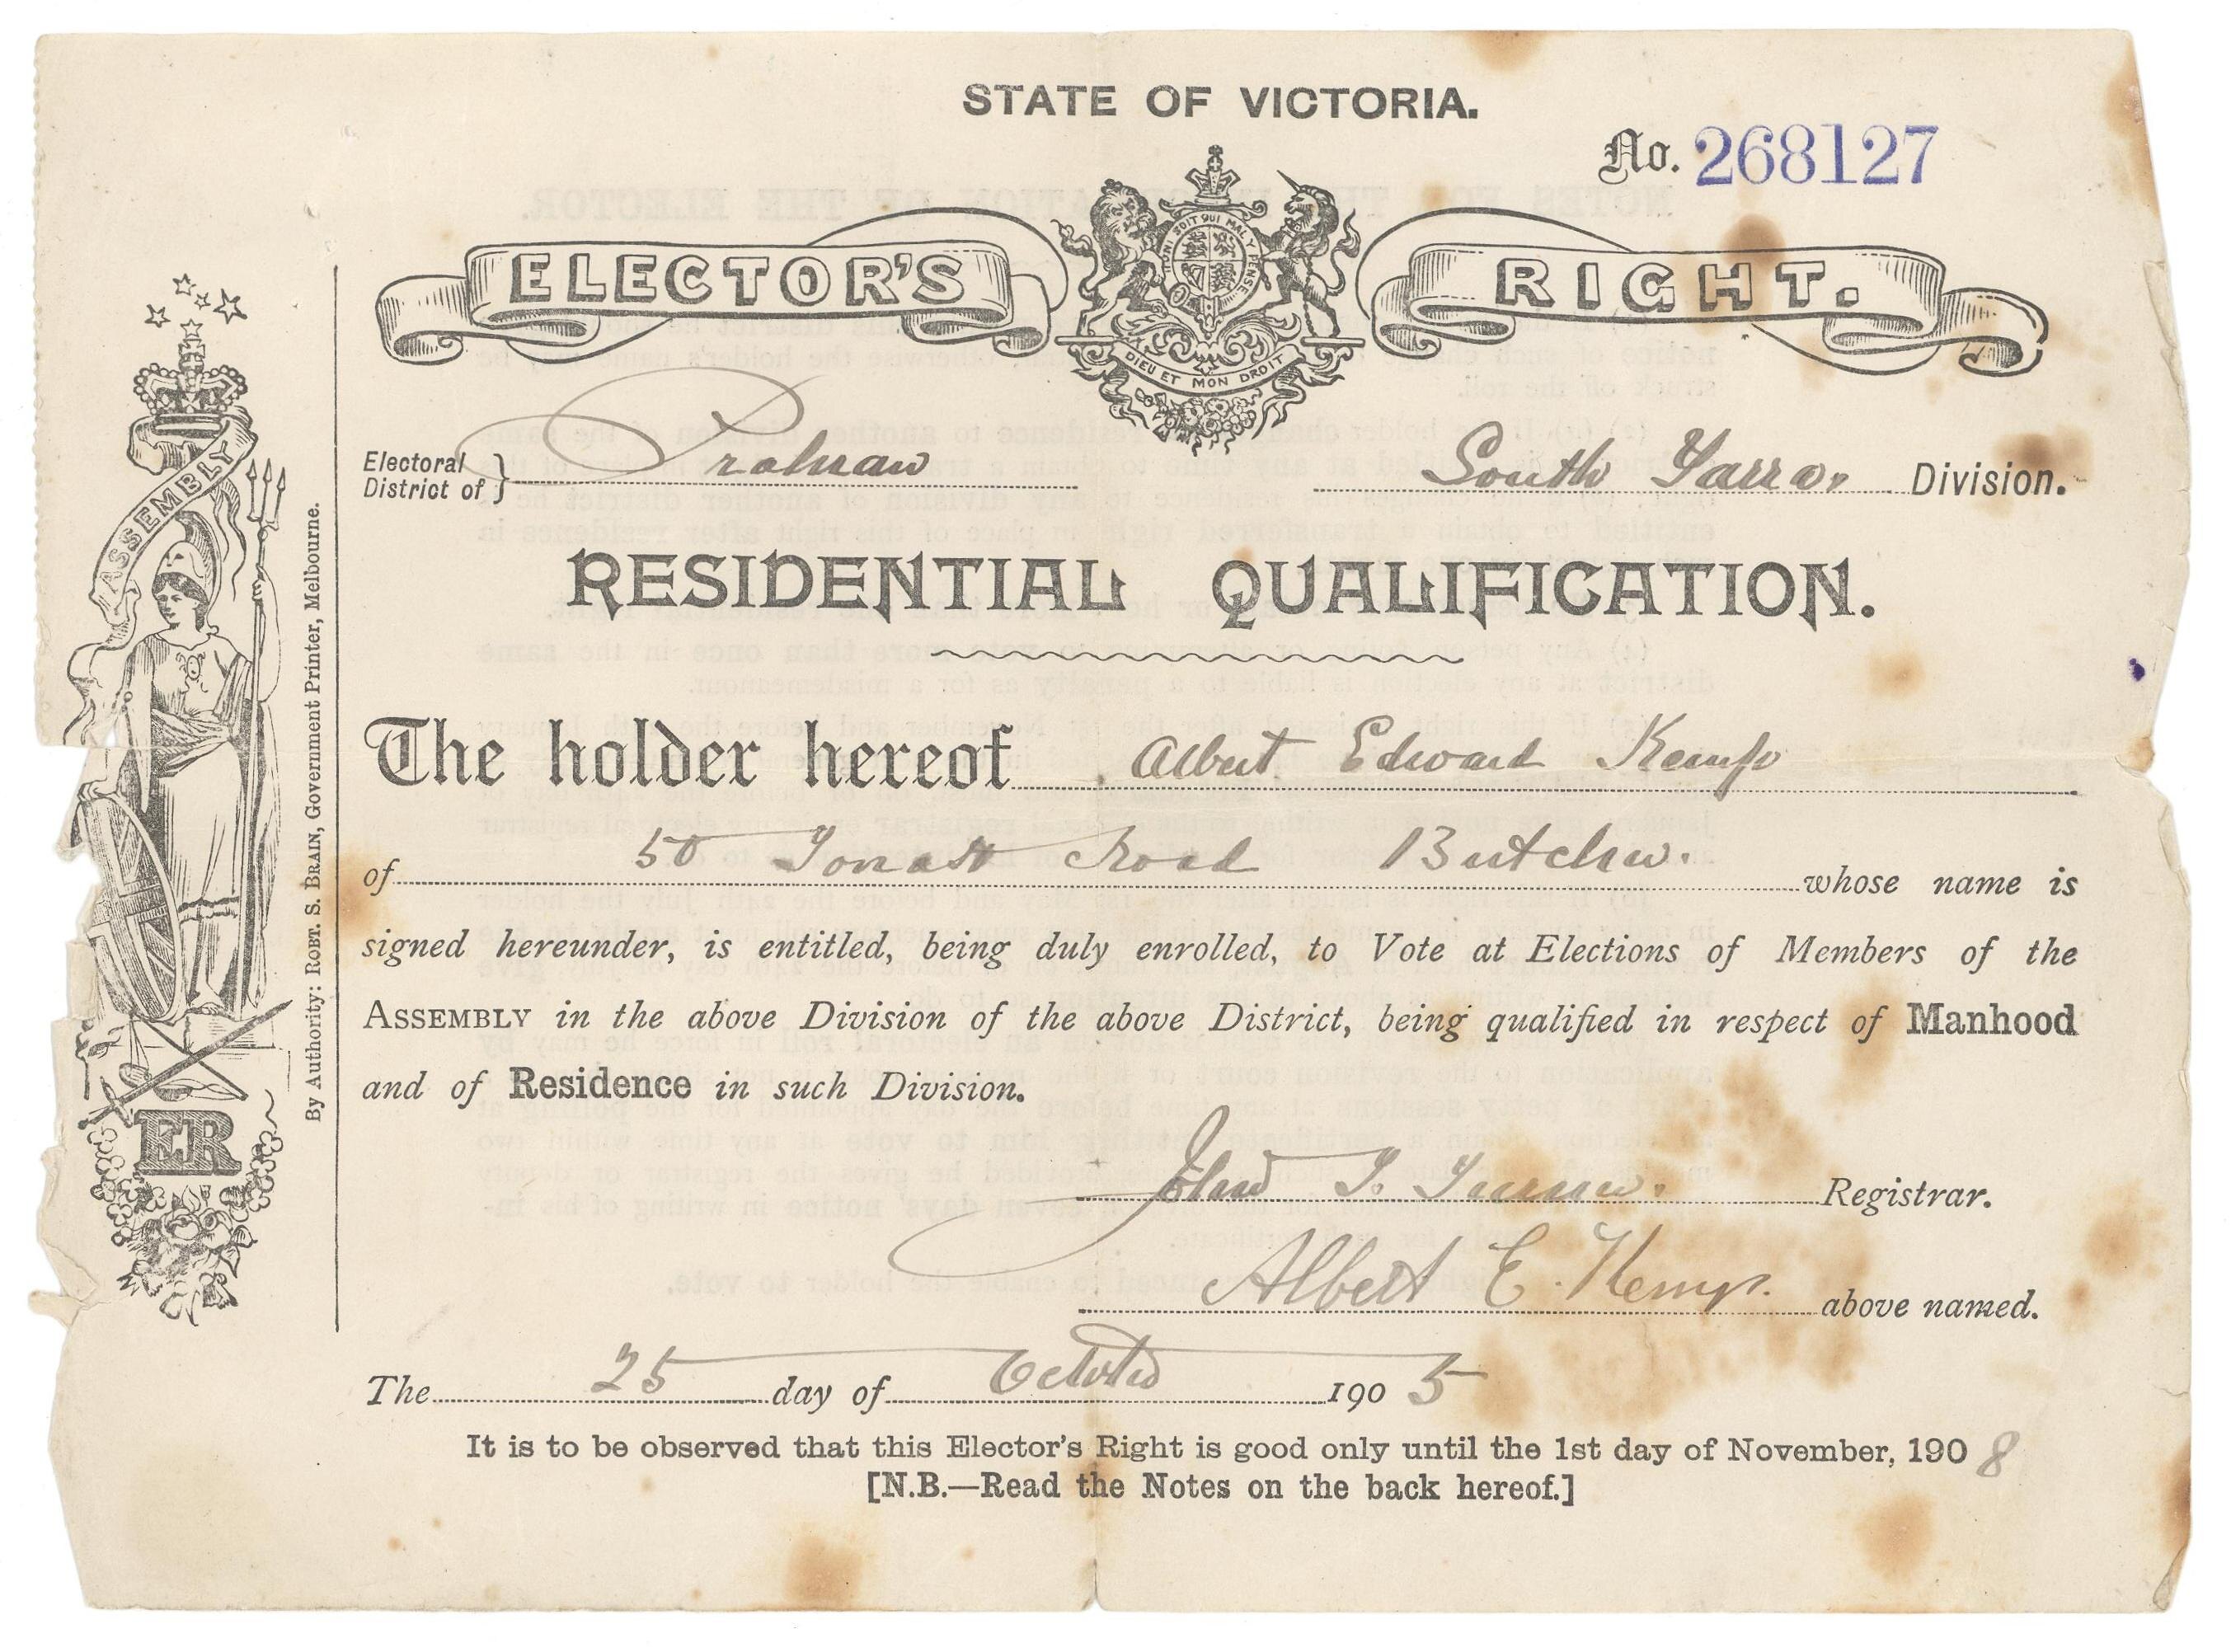 STATE OF VICTORIA.
No. 268127
ELECTOR'S RIGHT.
HONI SOIT QUI MAL Y PENSE
DIEU ET MON DROIT
Electoral District of } Prahran South Yarra. Division.
RESIDENTIAL QUALIFICATION.
The holder hereof Albert Edward Kemp
of 50 Road Butcher. whose name is
signed hereunder, is entitled, being duly enrolled, to Vote at Elections of Members of the
ASSEMBLY in the above Division of the above District, being qualified in respect of Manhood
and of Residence in such Division.
John T. Turner. Registrar.
Albert E. Kemp. above named.
The 25 day of October 1905
It is to be observed that this Elector's Right is good only until the 1st day of November, 1908
[N.B.—Read the Notes on the back hereof.]
ASSEMBLY
ER
By Authority: ROBT. S. BRAIN, Government Printer, Melbourne.